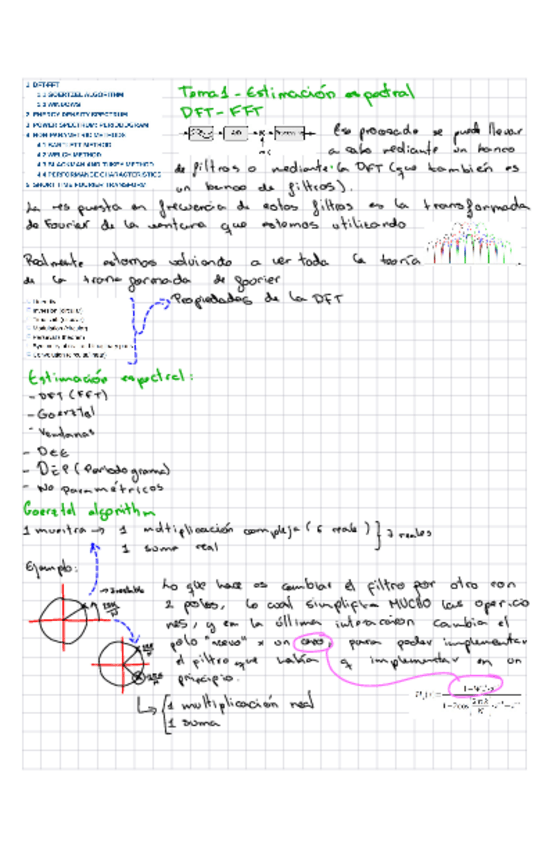 1 DFT-FFT
1.1 GOERTZEL ALGORITHM
1.2 WINDOWS
2 ENERGY DENSITY SPECTRUM
3 POWER SPECTRUM: PERIODOGRAM
4 NON PARAMETRIC METHODS
4.1 BARTLETT METHOD
4.2 WELCH METHOD
4.3 BLACKMAN AND TUKEY METHOD
4.4 PERFORMANCE CHARACTERISTICS
5 SHORT TIME FOURIER TRANSFORM
Tema 1 - Estimación espectral
DFT - FFT
Ese procesado se puede llevar
a cabo mediante un banco
de filtros o mediante la DFT (que también es
un banco de filtros).
La respuesta en frecuencia de estos filtros es la transformada
de Fourier de la ventana que estemos utilizando
Realmente estamos volviendo a ver toda la teoría
de la transformada de fourier
Propiedades de la DFT
Estimación espectral:
- DFT (FFT)
- Goertzel
- Ventanas
- DEE
- DEP (Periodograma)
- No paramétricos
Goertzel algorithm
1 muestra → 1 multiplicación compleja (6 reals) } 7 reales
1 suma real
Ejemplo:
Lo que hace es cambiar el filtro por otro con
2 polos, lo cual simplifica MUCHO las operacio
nes, y en la última interacción cambia el
polo "nuevo" x un cero, para poder implementar
el filtro que había q implementar en un
principio.
1 multiplicación real
1 suma